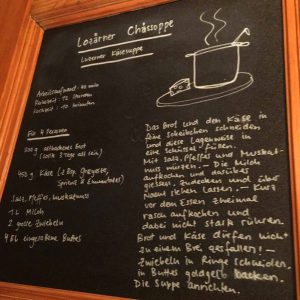 Lozärner Chässoppe
Luzerner Käsesuppe
Arbeitsaufwand: 40 min
Ruhezeit: 12 Stunden
Kochzeit: 10 Minuten
Für 4 Personen
300 g altbackenes Brot
(sollte 3 Tage alt sein)
450 g Käse (z.Bsp. Greyezer,
Sprinz & Emmentaler)
Salz, Pfeffer, Muskatnuss
1 L Milch
2 grosse Zwiebeln
4 EL eingesottene Butter
Das Brot und den Käse in
feine Scheibchen schneiden
und diese Lagenweise in
eine Schüssel füllen.
Mit Salz, Pfeffer und Muskat-
nuss würzen. - Die Milch
aufkochen und darüber
giessen. Zudecken und über
Nacht stehen lassen. - Kurz
vor dem Essen zweimal
rasch aufkochen und
dabei nicht stark rühren.
Brot und Käse dürfen nicht
zu einem Brei zerfallen! -
Zwiebeln in Ringe schneiden,
in Butter goldgelb backen.
Die Suppe anrichten.